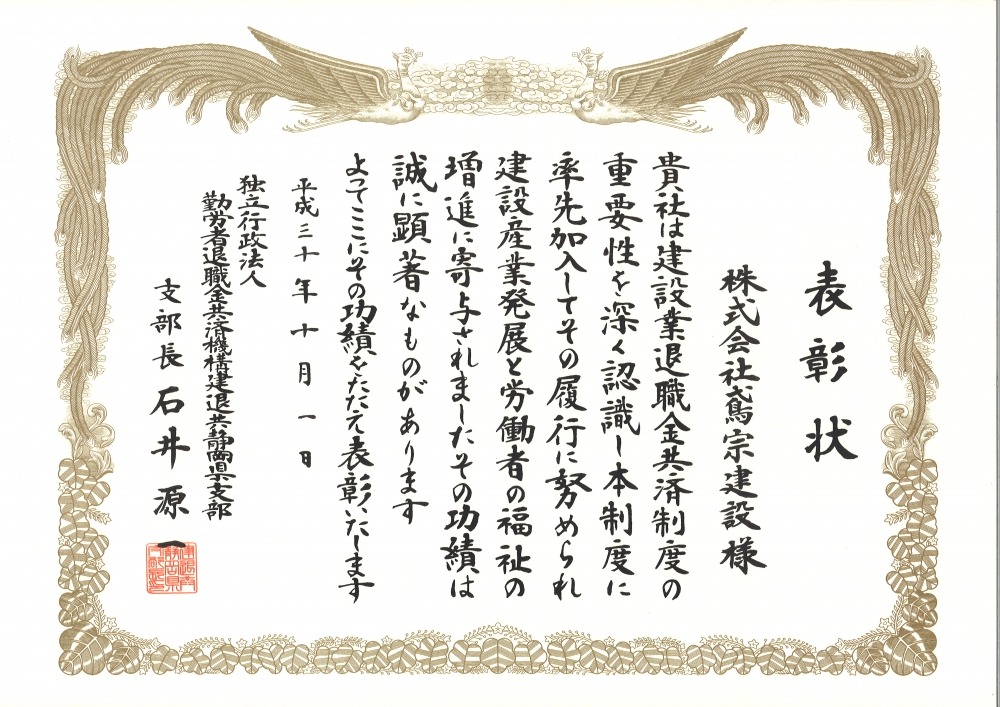 表彰状
株式会社鳶宗建設様
貴社は建設業退職金共済制度の
重要性を深く認識し本制度に
率先加入してその履行に努められ
建設産業発展と労働者の福祉の
増進に寄与されましたその功績は
誠に顕著なものがあります
よってここにその功績をたたえ表彰いたします
平成三十年十月一日
独立行政法人
勤労者退職金共済機構建退共静岡県支部
支部長 石井源一